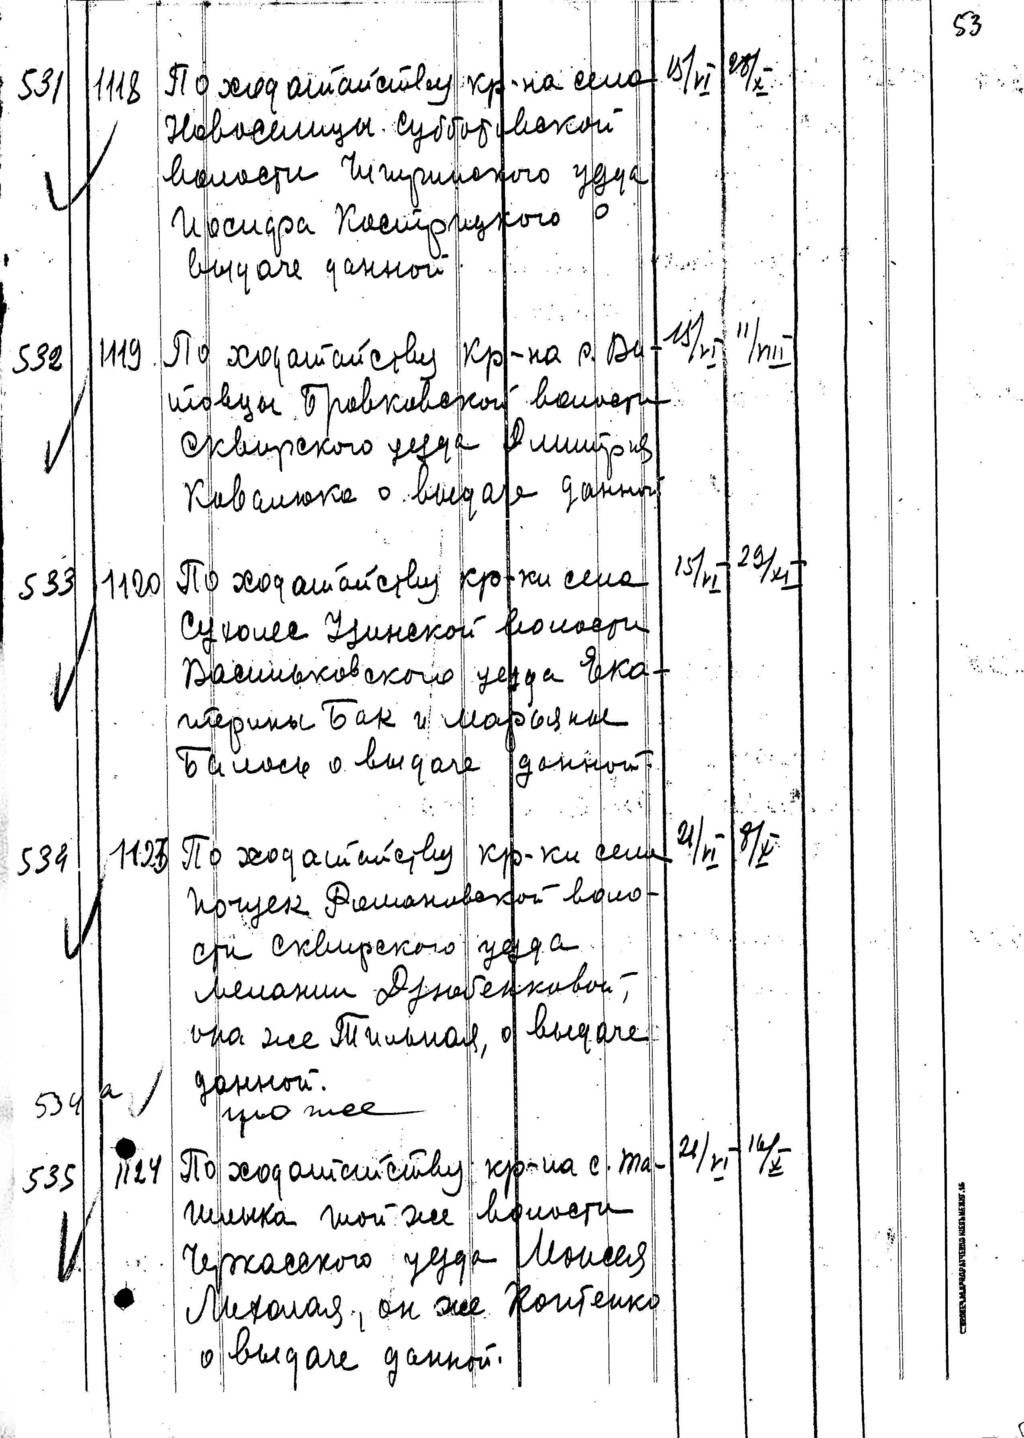 53
531 1118 По ходатайству кр-на села 15/VI 28/X
Новоселицы Субботовской
волости Чигиринского уезда
Иосифа Кострицкого о
выдаче данной
532 1119 По ходатайству кр-на с. Ви- 15/VI 11/VIII
товцы Бровковской волости
Сквирского уезда Дмитрия
Ковалюка о выдаче данной
533 1120 По ходатайству кр-ки села 15/VI 29/XI
Сухолес Узинской волости
Васильковского уезда Ека-
терины Бак и Марьяны
Билось о выдаче данной.
534 1123 По ходатайству кр-ки села 21/VI 8/X
Почуек Романовской воло-
сти Сквирского уезда
Мелании Дзюбенковой,
она же Тильная, о выдаче
данной.
534 а то же
535 1124 По ходатайству кр-на с. Та- 21/VI 16/X
шлыка той же волости
Черкасского уезда Моисея
Михолая, он же Коптенко
о выдаче данной.